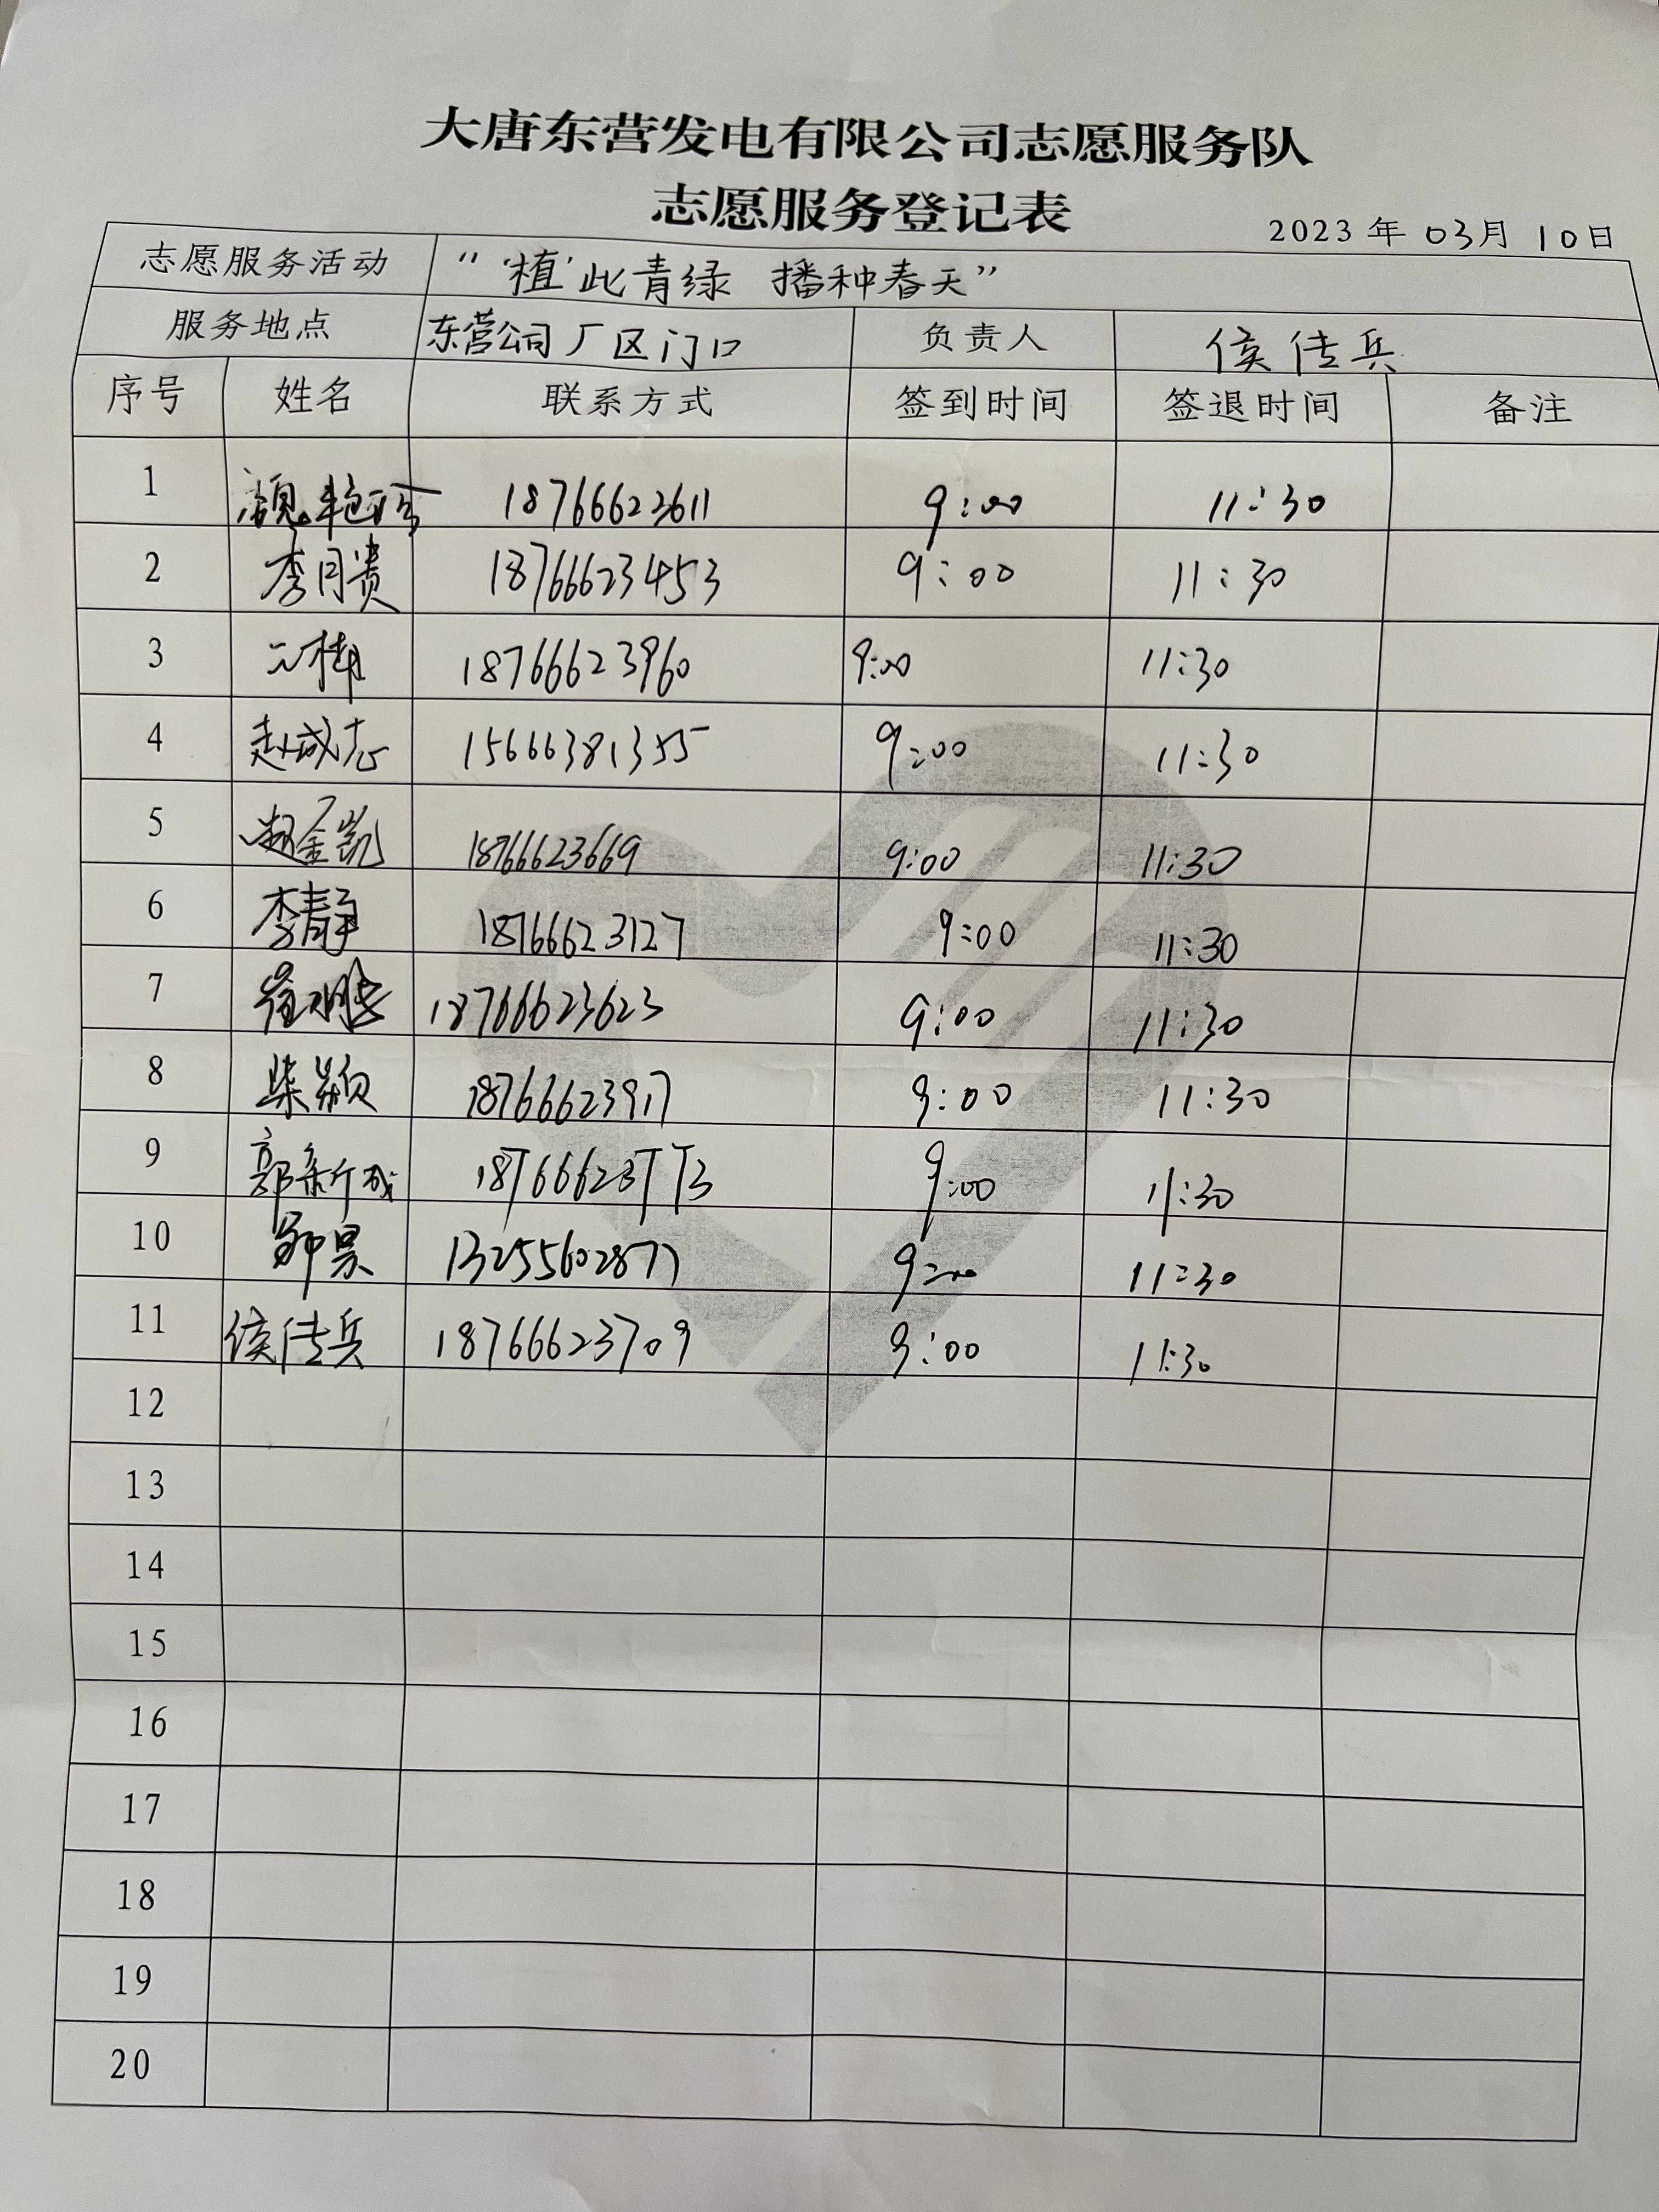 大唐东营发电有限公司志愿服务队
志愿服务登记表
2023年03月10日
志愿服务活动 “‘植’此青绿 播种春天”
服务地点 东营公司厂区门口 负责人 侯传兵
序号 姓名 联系方式 签到时间 签退时间 备注
1 18766623611 9:00 11:30
2 李月贵 18766623453 9:00 11:30
3 18766623960 9:00 11:30
4 赵成志 15666381355 9:00 11:30
5 赵金凯 18766623669 9:00 11:30
6 李静 18766623127 9:00 11:30
7 18766623623 9:00 11:30
8 柴颖 18766623917 9:00 11:30
9 郭新成 18766623773 9:00 11:30
10 13255602877 9:00 11:30
11 侯传兵 18766623709 9:00 11:30
12
13
14
15
16
17
18
19
20